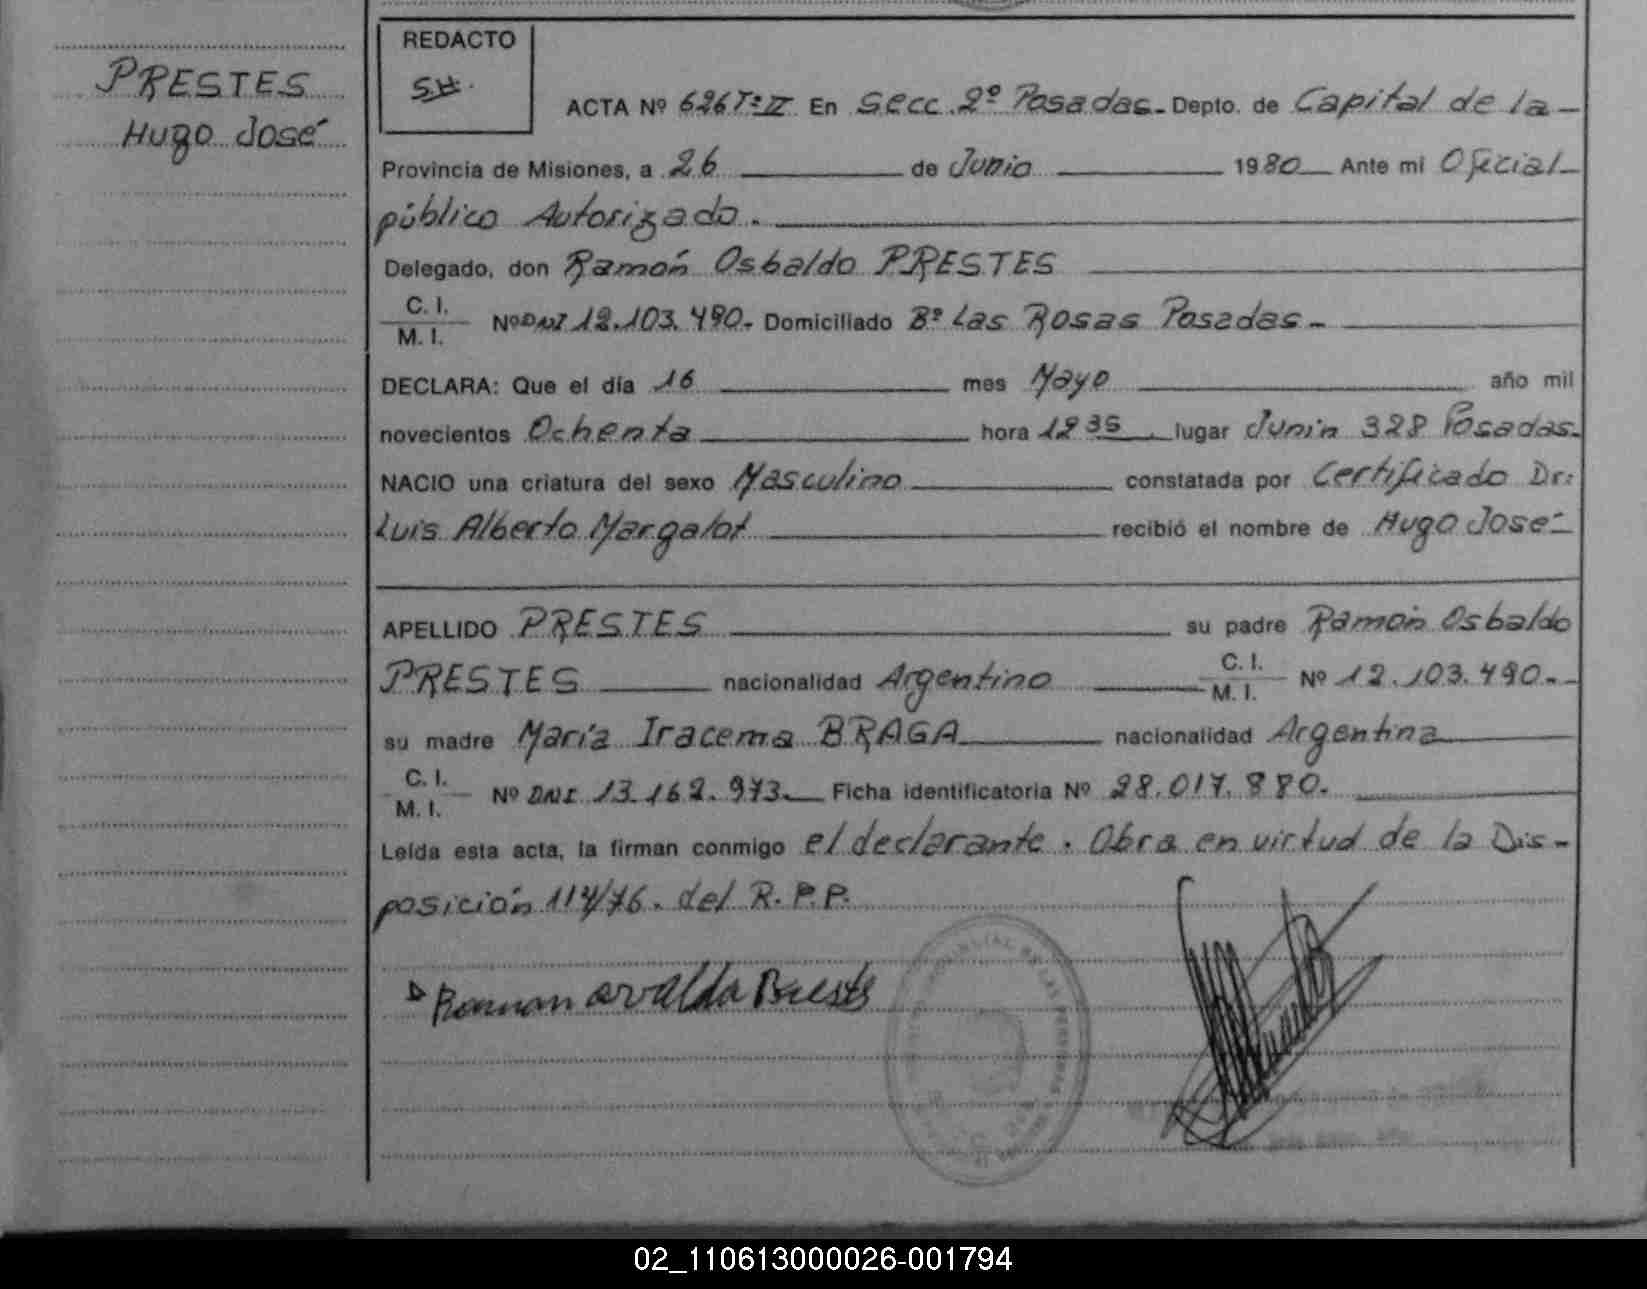 PRESTES
Hugo José
REDACTO
ACTA Nº 626 Tº II En Secc. 2º Posadas - Depto. de Capital de la -
Provincia de Misiones, a 26 de Junio 1980 Ante mi Oficial
público Autorizado.
Delegado, don Ramón Osbaldo PRESTES
C. I.
M. I. Nº DNI 12.103.490.- Domiciliado Bº Las Rosas Posadas -
DECLARA: Que el día 16 mes Mayo año mil
novecientos Ochenta hora 12 35 lugar Junin 328 Posadas.
NACIO una criatura del sexo Masculino constatada por Certificado Dr:
Luis Alberto Margalot recibió el nombre de Hugo José -
APELLIDO PRESTES su padre Ramón Osbaldo
PRESTES nacionalidad Argentino C. I. M. I. Nº 12.103.490.-
su madre María Iracema BRAGA nacionalidad Argentina
C. I.
M. I. Nº DNI 13.162.973.- Ficha identificatoria Nº 28.017.880.
Leída esta acta, la firman conmigo el declarante. Obra en virtud de la Dis-
posición 114/76. del R.P.P.
02_110613000026-001794